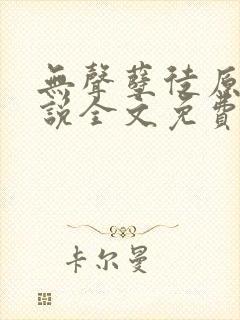 無聲孽徒原
說全文免費
卡尔曼